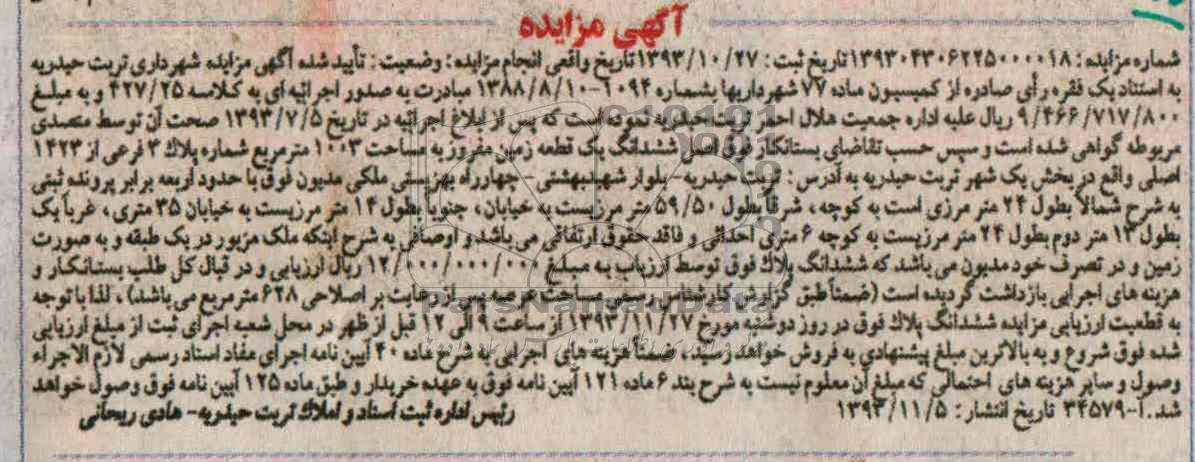 آگهی مزایده
شماره مزایده: ۱۳۹۳۰۴۳۰۶۲۲۵۰۰۰۰۱۸ تاریخ ثبت: ۱۳۹۳/۱۰/۲۷ تاریخ واقعی انجام مزایده: وضعیت: تأیید شده آگهی مزایده شهرداری تربت حیدریه
به استناد یک فقره رأی صادره از کمیسیون ماده ۷۷ شهرداریها بشماره ۶۰۹۴-۱۳۸۸/۸/۱۰ مبادرت به صدور اجرائیه ای به کلاسه ۴۲۷/۲۵ و به مبلغ
۹/۴۶۶/۷۱۷/۸۰۰ ریال علیه اداره جمعیت هلال احمر تربت حیدریه نموده است که پس از ابلاغ اجرائیه در تاریخ ۱۳۹۳/۷/۵ صحت آن توسط متصدی
مربوطه گواهی شده است و سپس حسب تقاضای بستانکار فوق اصل ششدانگ یک قطعه زمین مفروز به مساحت ۱۰۰۳ مترمربع شماره پلاک ۳ فرعی از ۱۴۲۳
اصلی واقع در بخش یک شهر تربت حیدریه به آدرس: تربت حیدریه - بلوار شهید بهشتی - چهارراه بهزیستی ملکی مدیون فوق با حدود اربعه برابر پرونده ثبتی
به شرح شمالا بطول ۲۴ متر مرزی است به کوچه، شرقا بطول ۵۹/۵۰ متر مرزیست به خیابان، جنوبا بطول ۱۴ متر مرزیست به خیابان ۳۵ متری، غربا یک
بطول ۱۳ متر دوم بطول ۲۴ متر مرزیست به کوچه ۶ متری احداثی و فاقد حقوق ارتفاقی می باشد و اوصافی به شرح اینکه ملک مزبور در یک طبقه و به صورت
زمین و در تصرف خود مدیون می باشد که ششدانگ پلاک فوق توسط ارزیاب به مبلغ ۱۲/۰۰۰/۰۰۰/۰۰۰ ریال ارزیابی و در قبال کل طلب بستانکار و
هزینه های اجرایی بازداشت گردیده است (ضمناً طبق گزارش کارشناس رسمی مساحت عرصه پس از رعایت بر اصلاحی ۶۲۸ مترمربع می باشد)، لذا با توجه
به قطعیت ارزیابی مزایده ششدانگ پلاک فوق در روز دوشنبه مورخ ۱۳۹۳/۱۱/۲۷ از ساعت ۹ الی ۱۲ قبل از ظهر در محل شعبه اجرای ثبت از مبلغ ارزیابی
شده فوق شروع و به بالاترین مبلغ پیشنهادی به فروش خواهد رسید، ضمناً هزینه های اجرایی به شرح ماده ۴۰ آیین نامه اجرای مفاد اسناد رسمی لازم الاجراء
وصول و سایر هزینه های احتمالی که مبلغ آن معلوم نیست به شرح بند ۶ ماده ۱۲۱ آیین نامه فوق به عهده خریدار و طبق ماده ۱۲۵ آیین نامه فوق وصول خواهد
شد. آ-۳۴۵۷۹ تاریخ انتشار: ۱۳۹۳/۱۱/۵
رئیس اداره ثبت اسناد و املاک تربت حیدریه - هادی ریحانی